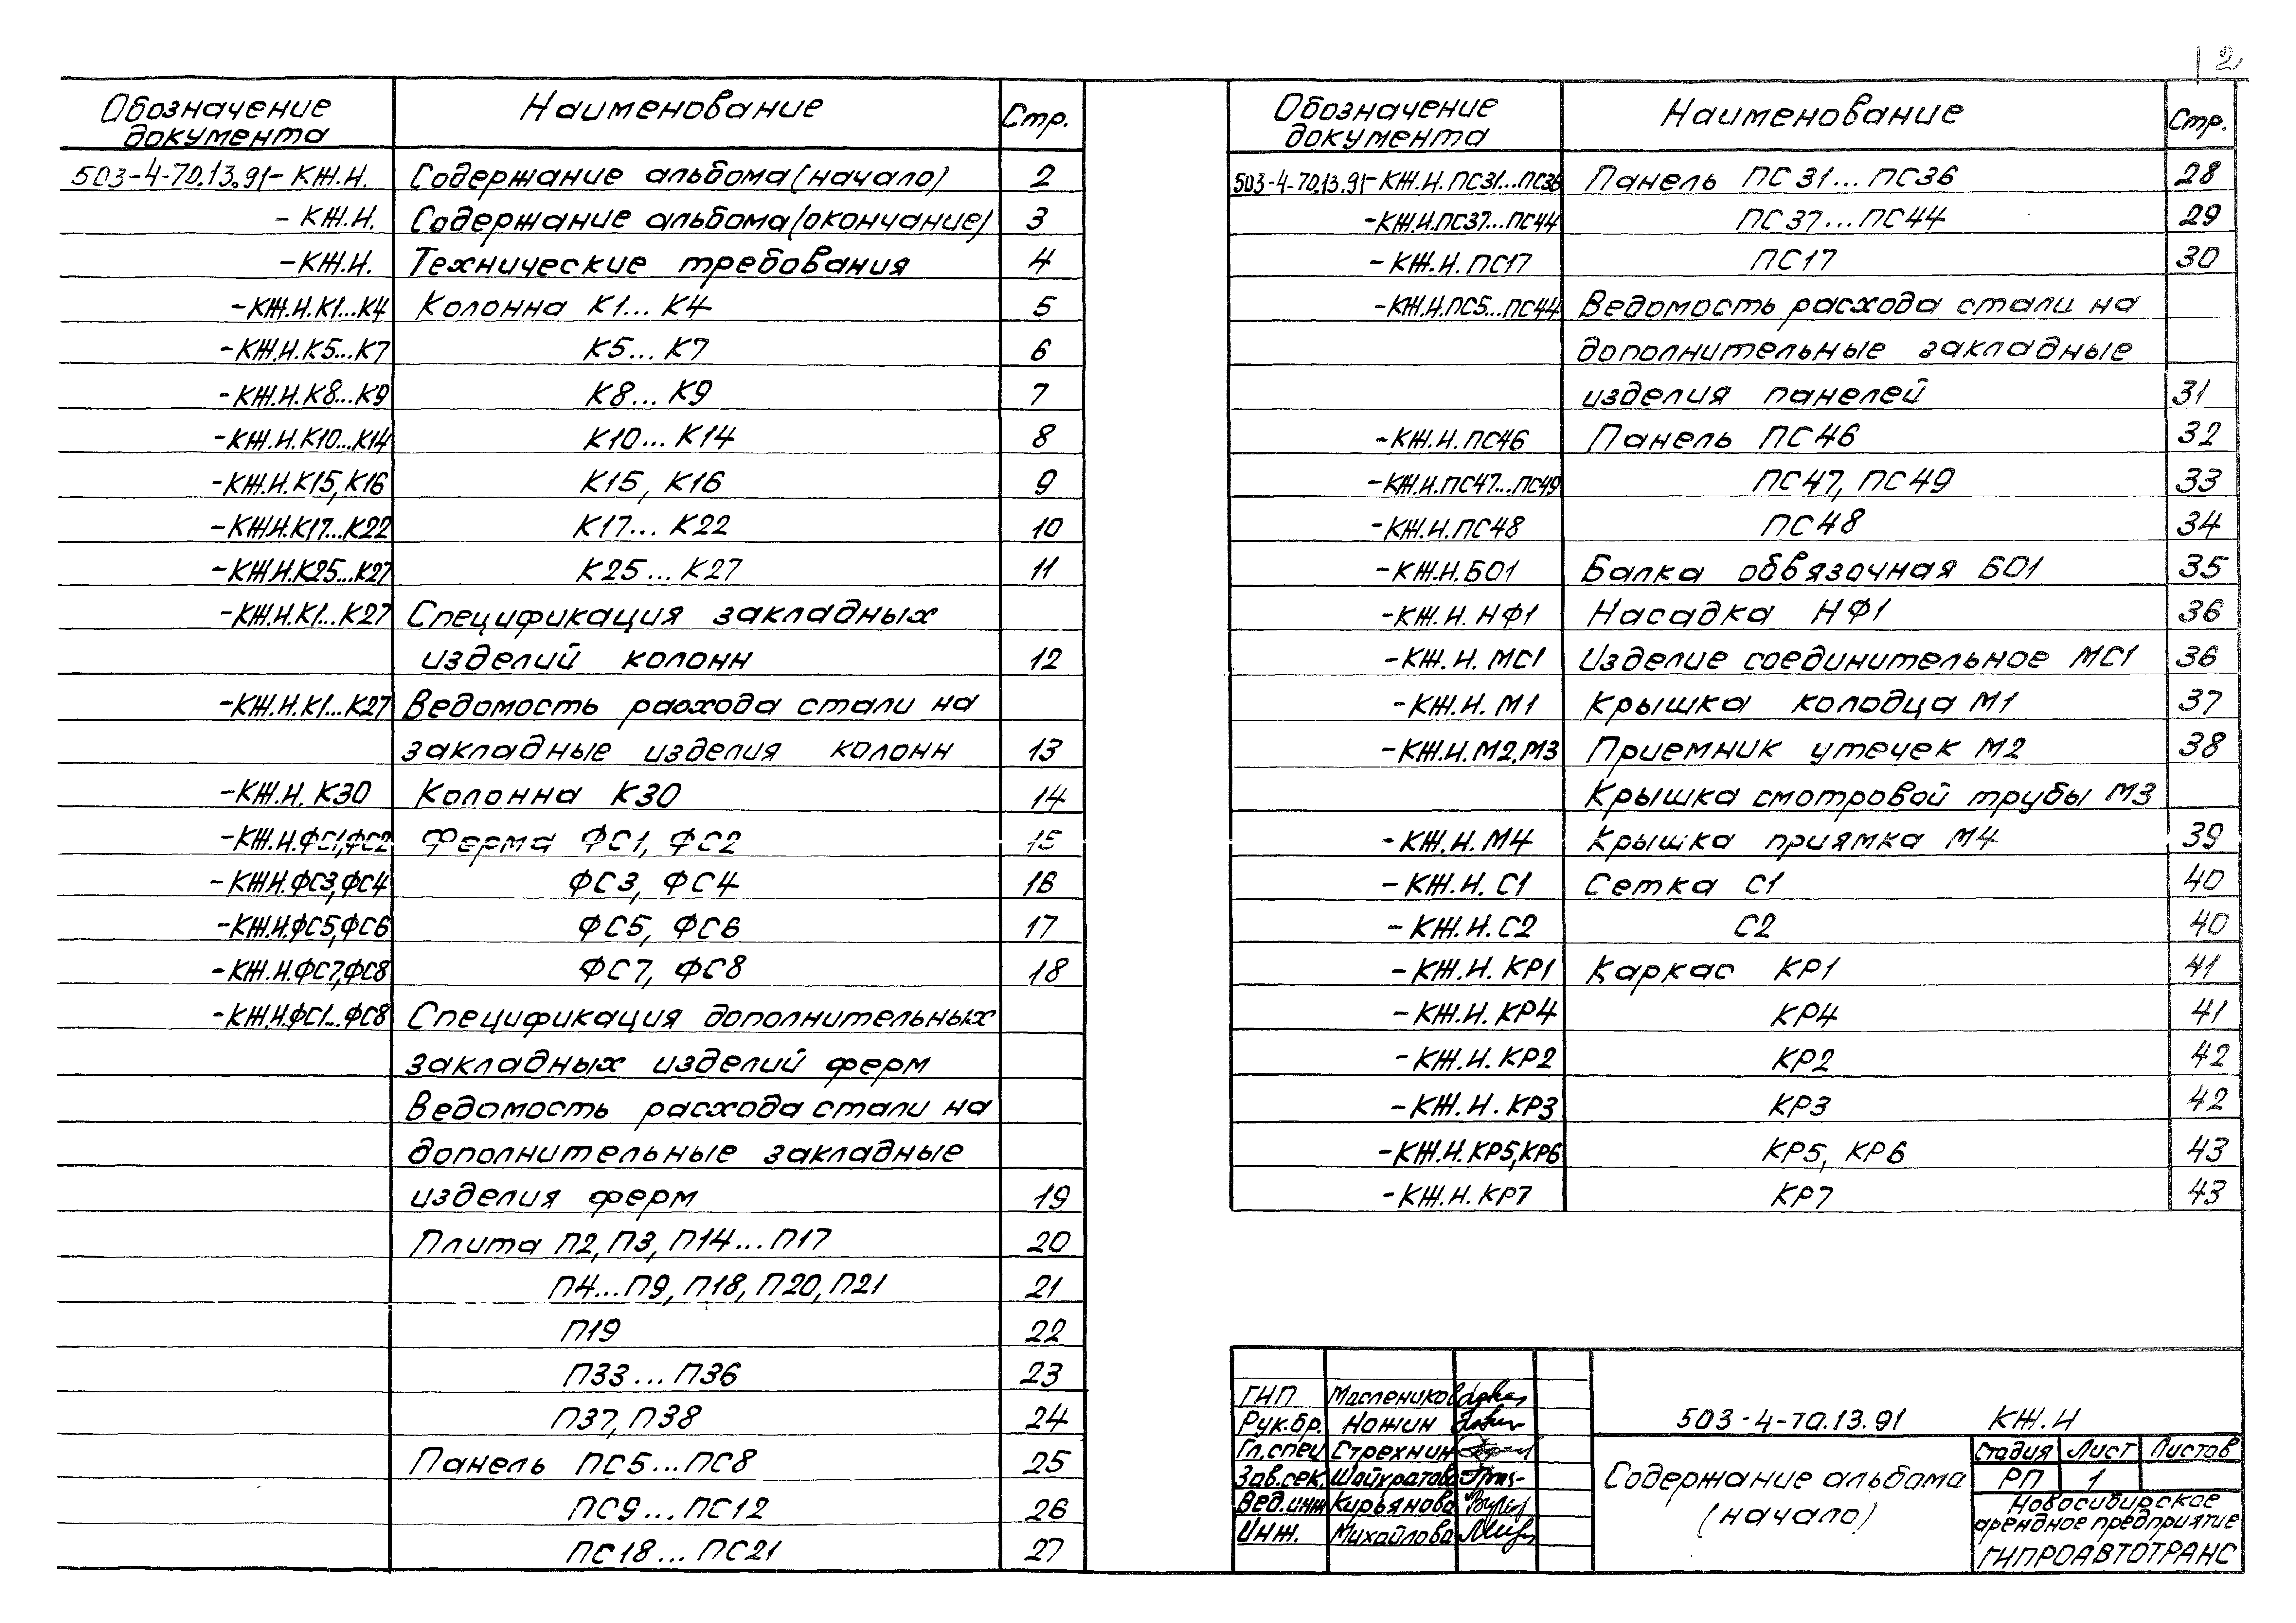 2
Обозначение документа Наименование Стр.
503-4-70.13.91-КЖ.И. Содержание альбома (начало) 2
-КЖ.И. Содержание альбома (окончание) 3
-КЖ.И. Технические требования 4
-КЖ.И.К1...К4 Колонна К1...К4 5
-КЖ.И.К5...К7 К5...К7 6
-КЖ.И.К8...К9 К8...К9 7
-КЖ.И.К10...К14 К10...К14 8
-КЖ.И.К15,К16 К15, К16 9
-КЖ.И.К17...К22 К17...К22 10
-КЖ.И.К25...К27 К25...К27 11
-КЖ.И.К1...К27 Спецификация закладных
изделий колонн 12
-КЖ.И.К1...К27 Ведомость расхода стали на
закладные изделия колонн 13
-КЖ.И. К30 Колонна К30 14
-КЖ.И.ФС1,ФС2 Ферма ФС1, ФС2 15
-КЖ.И.ФС3,ФС4 ФС3, ФС4 16
-КЖ.И.ФС5,ФС6 ФС5, ФС6 17
-КЖ.И.ФС7,ФС8 ФС7, ФС8 18
-КЖ.И.ФС1...ФС8 Спецификация дополнительных
закладных изделий ферм
Ведомость расхода стали на
дополнительные закладные
изделия ферм 19
Плита П2,П3,П14...П17 20
П4...П9,П18,П20,П21 21
П19 22
П33...П36 23
П37,П38 24
Панель ПС5...ПС8 25
ПС9...ПС12 26
ПС18...ПС21 27
Обозначение документа Наименование Стр.
503-4-70.13.91-КЖ.И.ПС31...ПС36 Панель ПС31...ПС36 28
-КЖ.И.ПС37...ПС44 ПС37...ПС44 29
-КЖ.И.ПС17 ПС17 30
-КЖ.И.ПС5...ПС44 Ведомость расхода стали на
дополнительные закладные
изделия панелей 31
-КЖ.И.ПС46 Панель ПС46 32
-КЖ.И.ПС47...ПС49 ПС47, ПС49 33
-КЖ.И.ПС48 ПС48 34
-КЖ.И.БО1 Балка обвязочная БО1 35
-КЖ.И. НФ1 Насадка НФ1 36
-КЖ.И. МС1 Изделие соединительное МС1 36
-КЖ.И. М1 Крышка колодца М1 37
-КЖ.И.М2,М3 Приемник утечек М2 38
Крышка смотровой трубы М3
-КЖ.И. М4 Крышка приямка М4 39
-КЖ.И. С1 Сетка С1 40
-КЖ.И.С2 С2 40
-КЖ.И. КР1 Каркас КР1 41
-КЖ.И. КР4 КР4 41
-КЖ.И. КР2 КР2 42
-КЖ.И. КР3 КР3 42
-КЖ.И.КР5,КР6 КР5, КР6 43
-КЖ.И. КР7 КР7 43
ГИП Маслеников
Рук.бр. Ножин
Гл.спец Стрехнин
Зав.сек. Шайхратова
Вед.инж Курьянова
Инж. Михайлова
503-4-70.13.91 КЖ.И
Содержание альбома
(начало)
Стадия Лист Листов
РП 1
Новосибирское
арендное предприятие
ГИПРОАВТОТРАНС